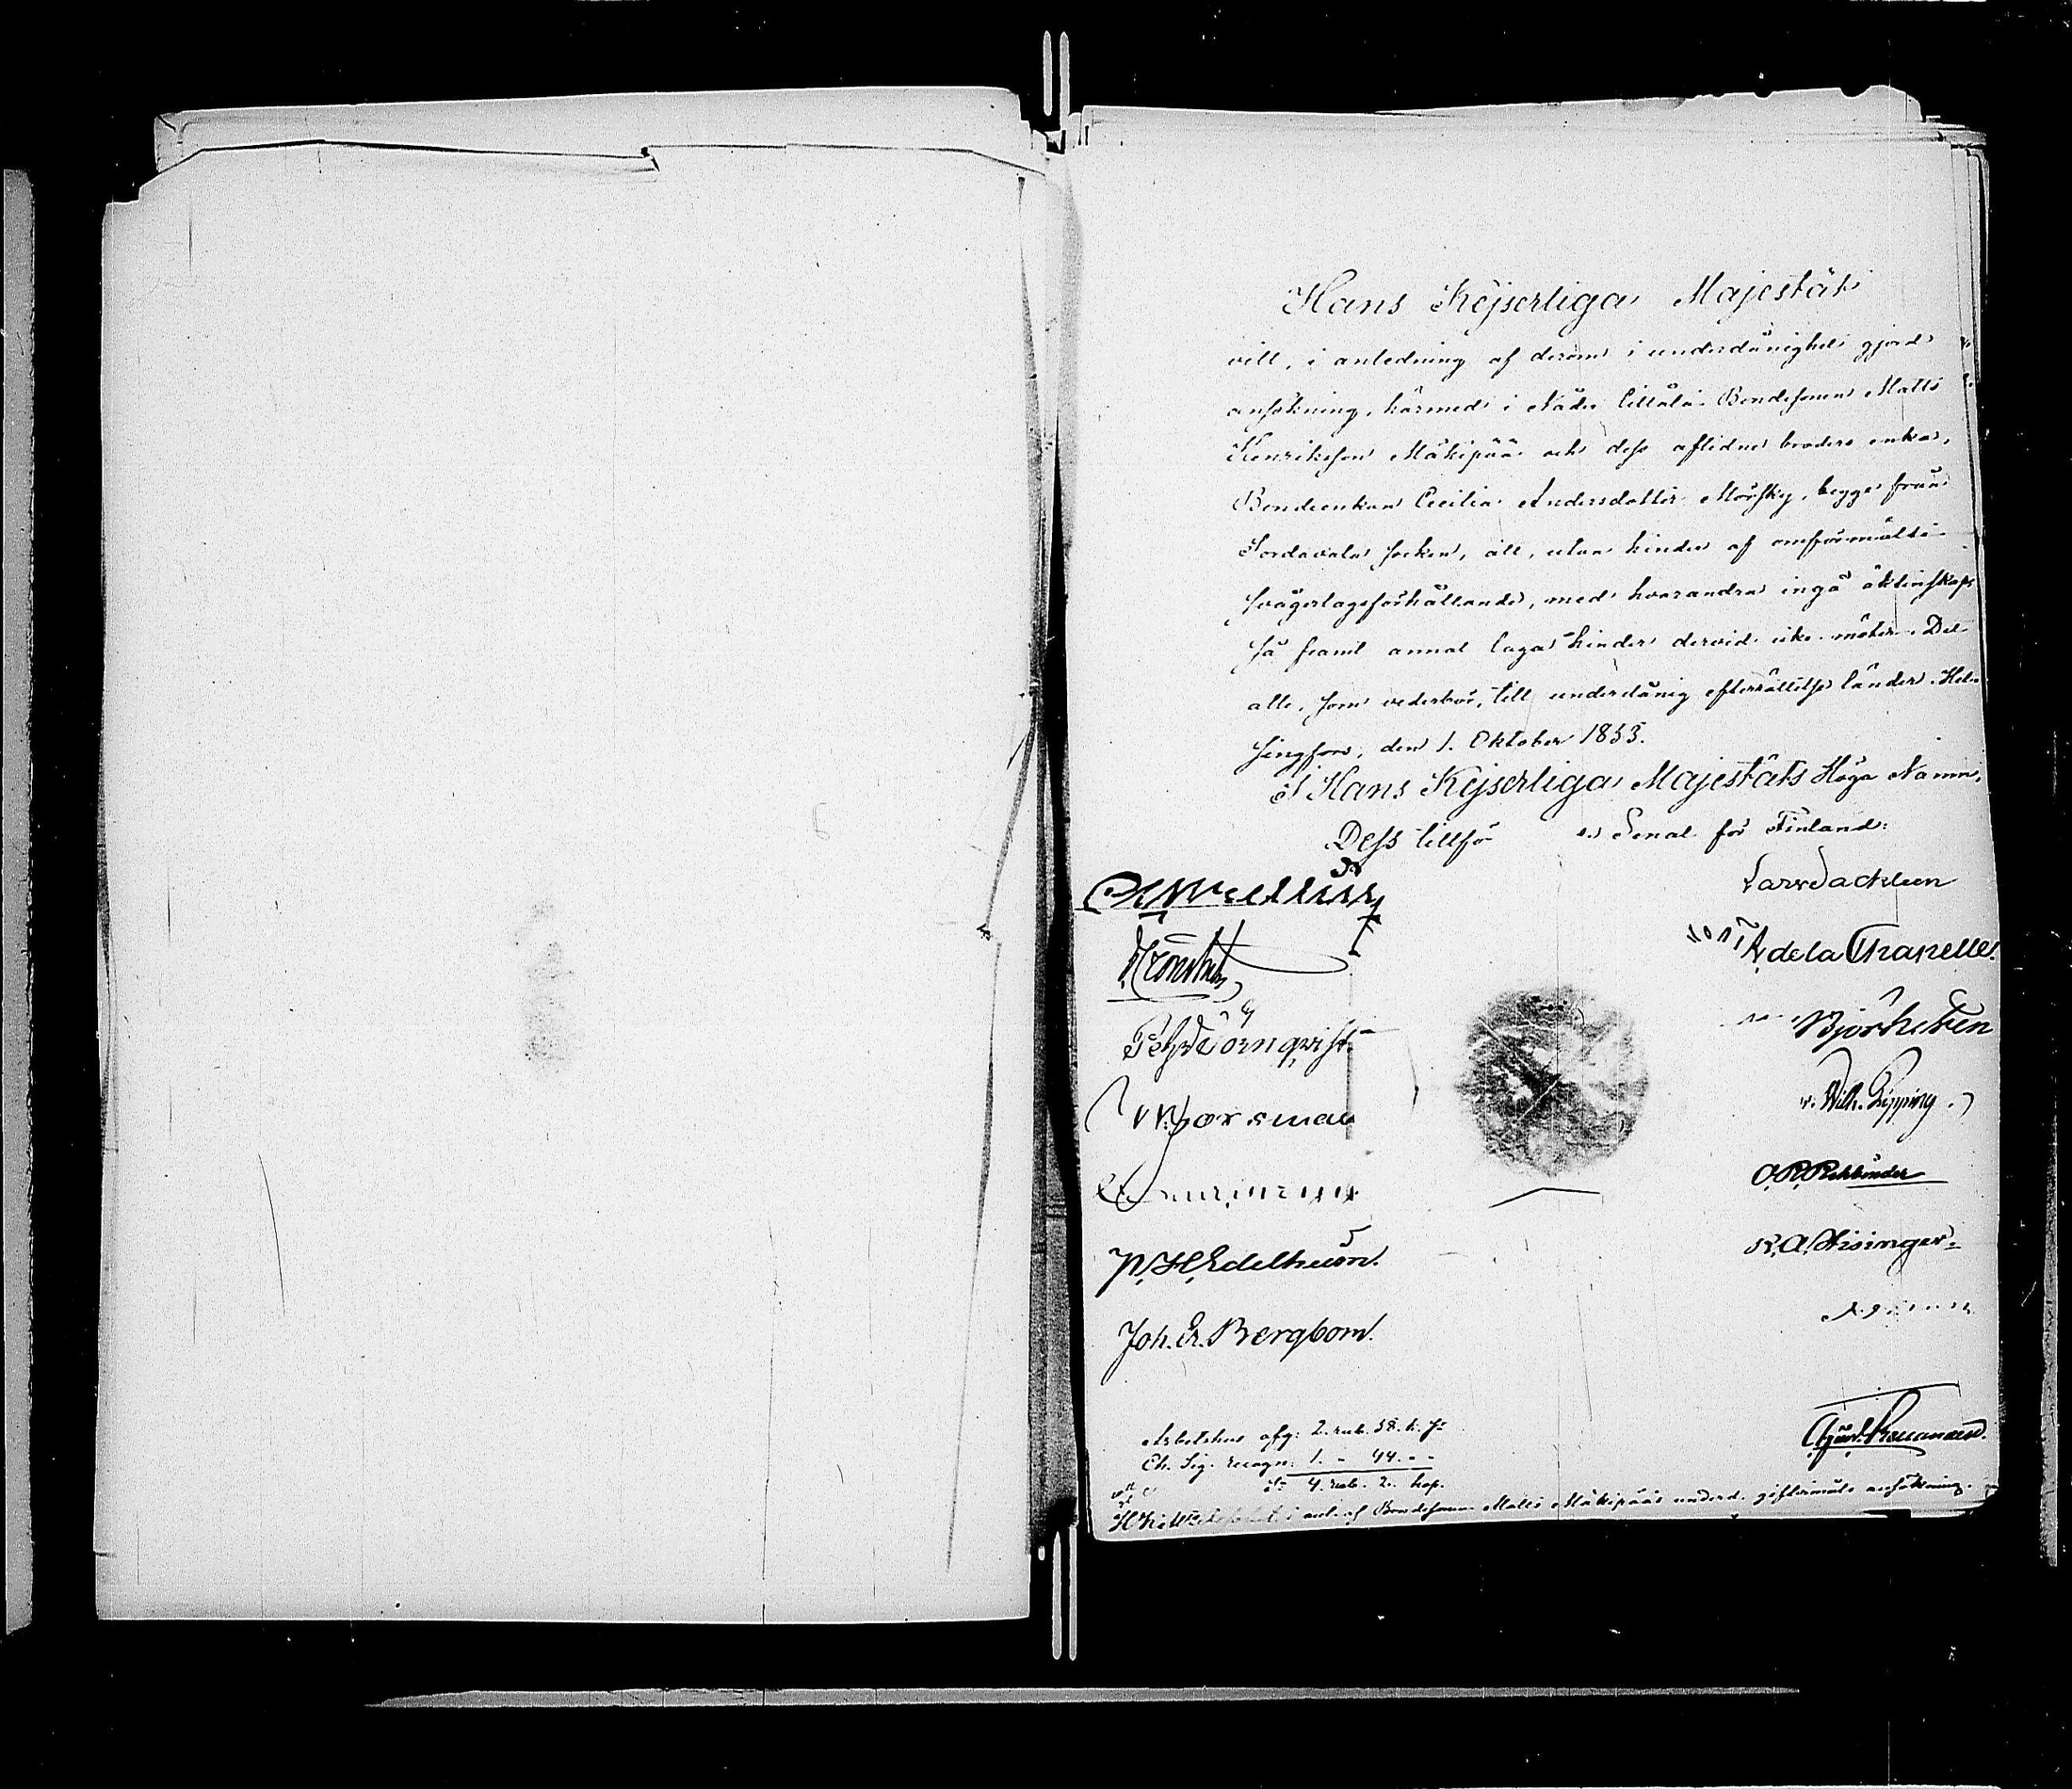 Hans Kejserliga Majestät
vill, i anledning af derom i underdånighet gjord
ansökning, härmed i Nåder tillåta Bondesonen Matts
Henriksson Mäkipää och dess aflidne broders enka,
Bondeenkan Cecilia Andersdotter Mörsky, begge från
Sordavala socken, att, utan hinder af omförmälte
svågerlagsförhållande, med hvarandra ingå äktenskap
så framt annat laga hinder dervid icke möter. Det
alle, som vederbör, till underdånig efterrättelse länder. Hel-
singfors, den 1. Oktober 1853.
I Hans Kejserliga Majestäts Höga Namn,
Dess tillför Senat för Finland:
Lars Sackleen
de la Chapelle
Petr Törnqvist
Björksten
W. Forsman
Wilh. Pipping
O. R. Rehbinder
P. H. Edelheim
R. A. Hisinger
Joh. Er. Bergbom
Arbetshus afg: 2. rub. 58. k. Sr
Ch. Sig. recogn: 1. " 44. " "
Sr 4. rub. 2. kop.
i anl. af Bondesonen Matts Mäkipääs underd. giftermåls ansökning.